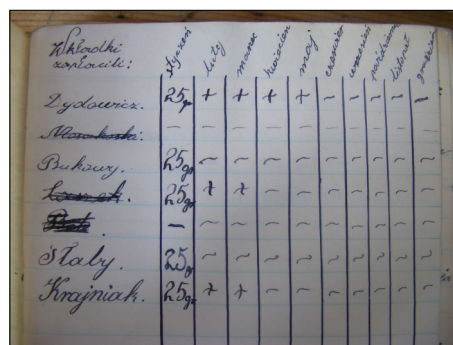 Składki styczeń luty marzec kwiecień maj czerwiec wrzesień październ listopad grudzień
zapłacili:
Dydowicz. 25gr + + + + ~ ~ ~ ~ ~
— — — — — — — — — —
Bukowy. 25gr ~ ~ ~ ~ ~ ~ ~ ~ ~
25gr + + ~ ~ ~ ~ ~ ~ ~
— ~ ~ ~ ~ ~ ~ ~ ~ ~
Słaby. 25gr ~ ~ ~ ~ ~ ~ ~ ~ ~
Krajniak. 25gr + + ~ ~ ~ ~ ~ ~ ~